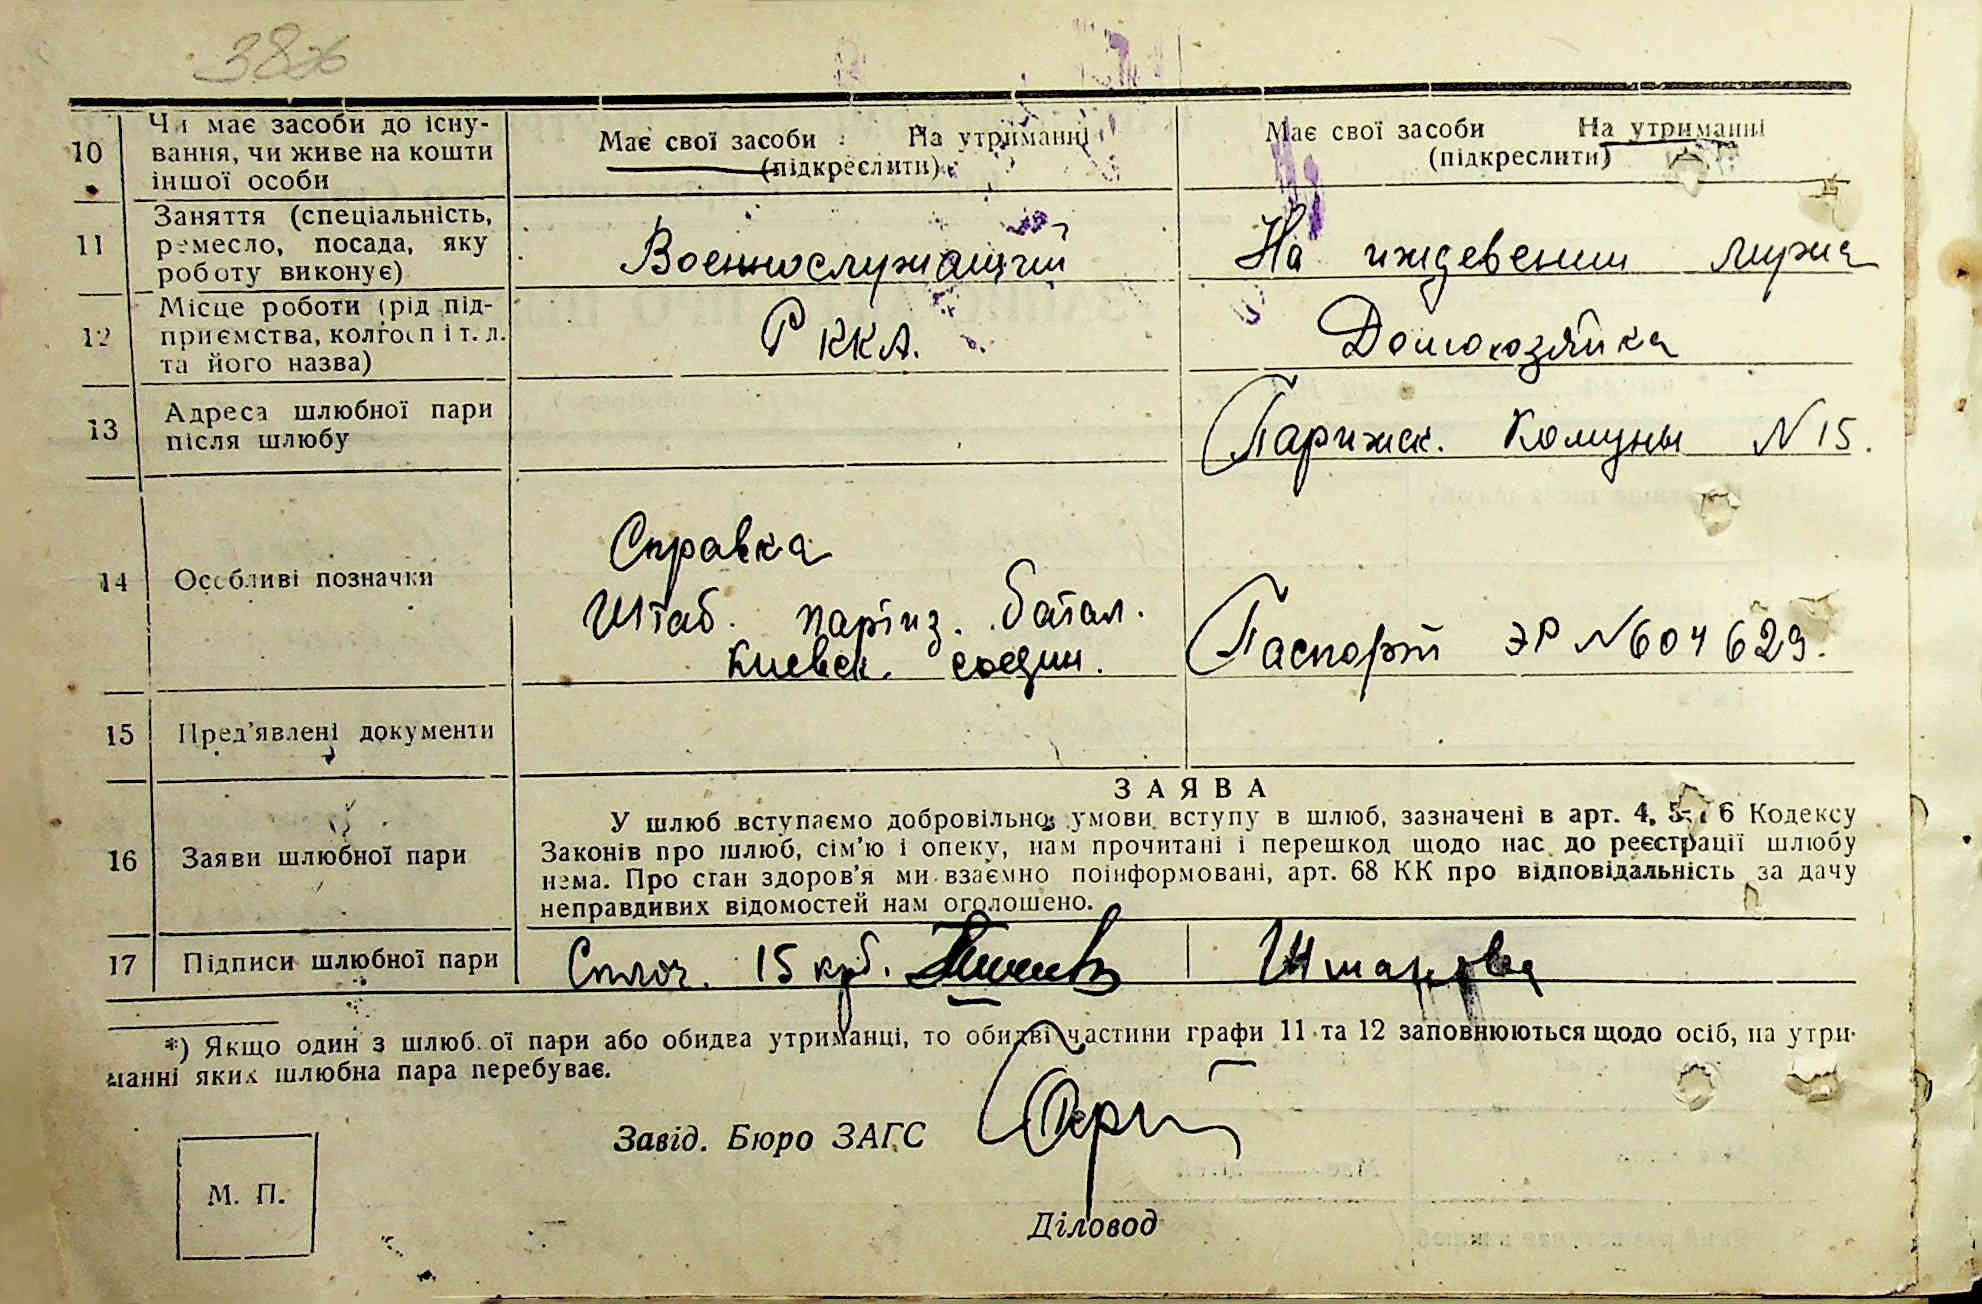 10 Чи має засоби до існу-
вання, чи живе на кошти
іншої особи
Має свої засоби На утриманні
(підкреслити)
Має свої засоби На утриманні
(підкреслити)
11 Заняття (спеціальність,
ремесло, посада, яку
роботу виконує)
Военнослужащий
На иждевении мужа
12 Місце роботи (рід під-
приємства, колгосп і т. д.
та його назва)
РККА.
Домохозяйка
13 Адреса шлюбної пари
після шлюбу
Парижск. Комуны N 15.
14 Особливі позначки
Справка
Штаб. партиз. батал.
Киевск. соедин.
Паспорт ЭР N 604629.
15 Пред'явлені документи
16 Заяви шлюбної пари
ЗАЯВА
У шлюб вступаємо добровільно, умови вступу в шлюб, зазначені в арт. 4, 5 і 6 Кодексу
Законів про шлюб, сім'ю і опеку, нам прочитані і перешкод щодо нас до реєстрації шлюбу
нема. Про стан здоров'я ми взаємно поінформовані, арт. 68 КК про відповідальність за дачу
неправдивих відомостей нам оголошено.
17 Підписи шлюбної пари
Сплоч. 15 крб.
*) Якщо один з шлюбної пари або обидва утриманці, то обидві частини графи 11 та 12 заповнюються щодо осіб, на утри-
манні яких шлюбна пара перебуває.
Завід. Бюро ЗАГС
М. П.
Діловод